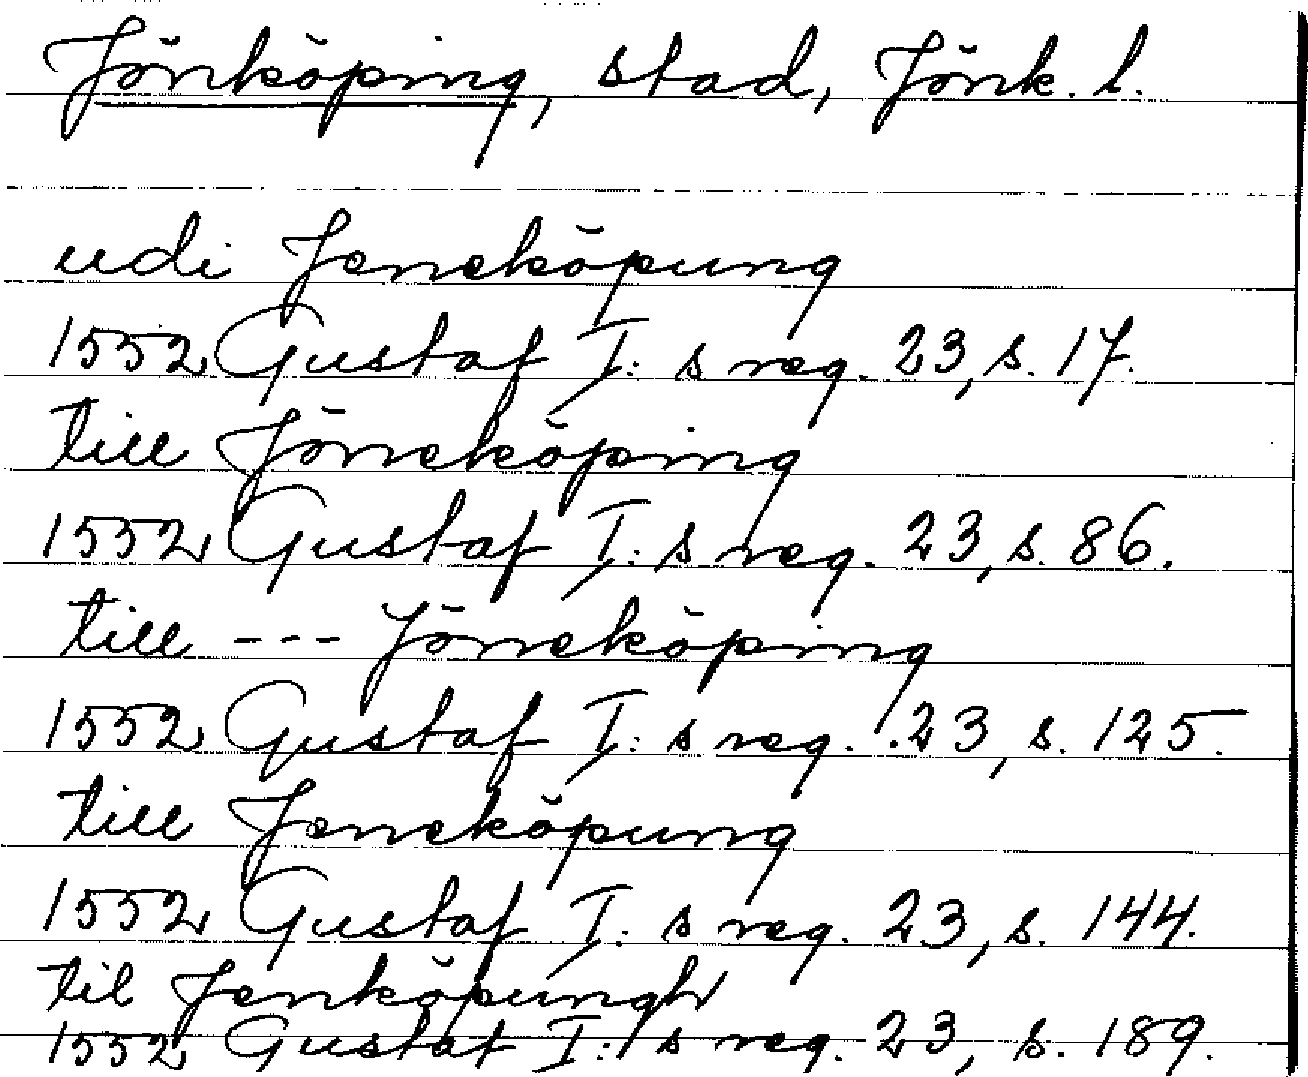 Jönköping, stad, Jönk. l.
udi Jeneköpung
1552 Gustaf I: s reg. 23, s. 17.
till Jöneköping
1552 Gustaf I: s reg. 23, s. 86.
till --- Jöneköping
1552 Gustaf I: s reg. 23, s. 125.
till Jeneköpung
1552 Gustaf I: s reg. 23, s. 144.
til Jenköpungh
1552 Gustaf I: s reg. 23, s. 189.